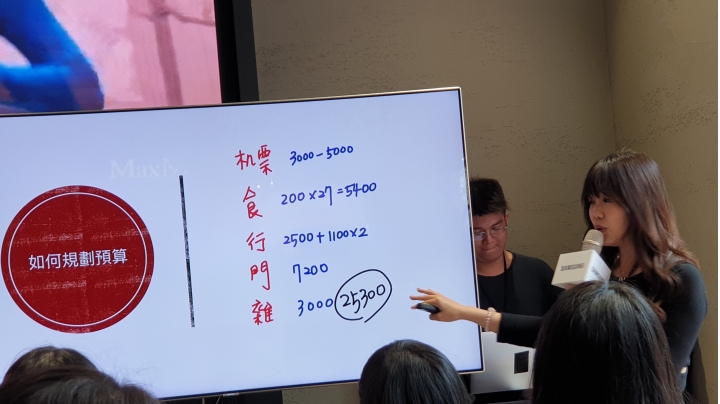 Maxi
如何規劃預算
机票 3000-5000
食 200×27=5400
行 2500+1100×2
門 7200
雜 3000 25300